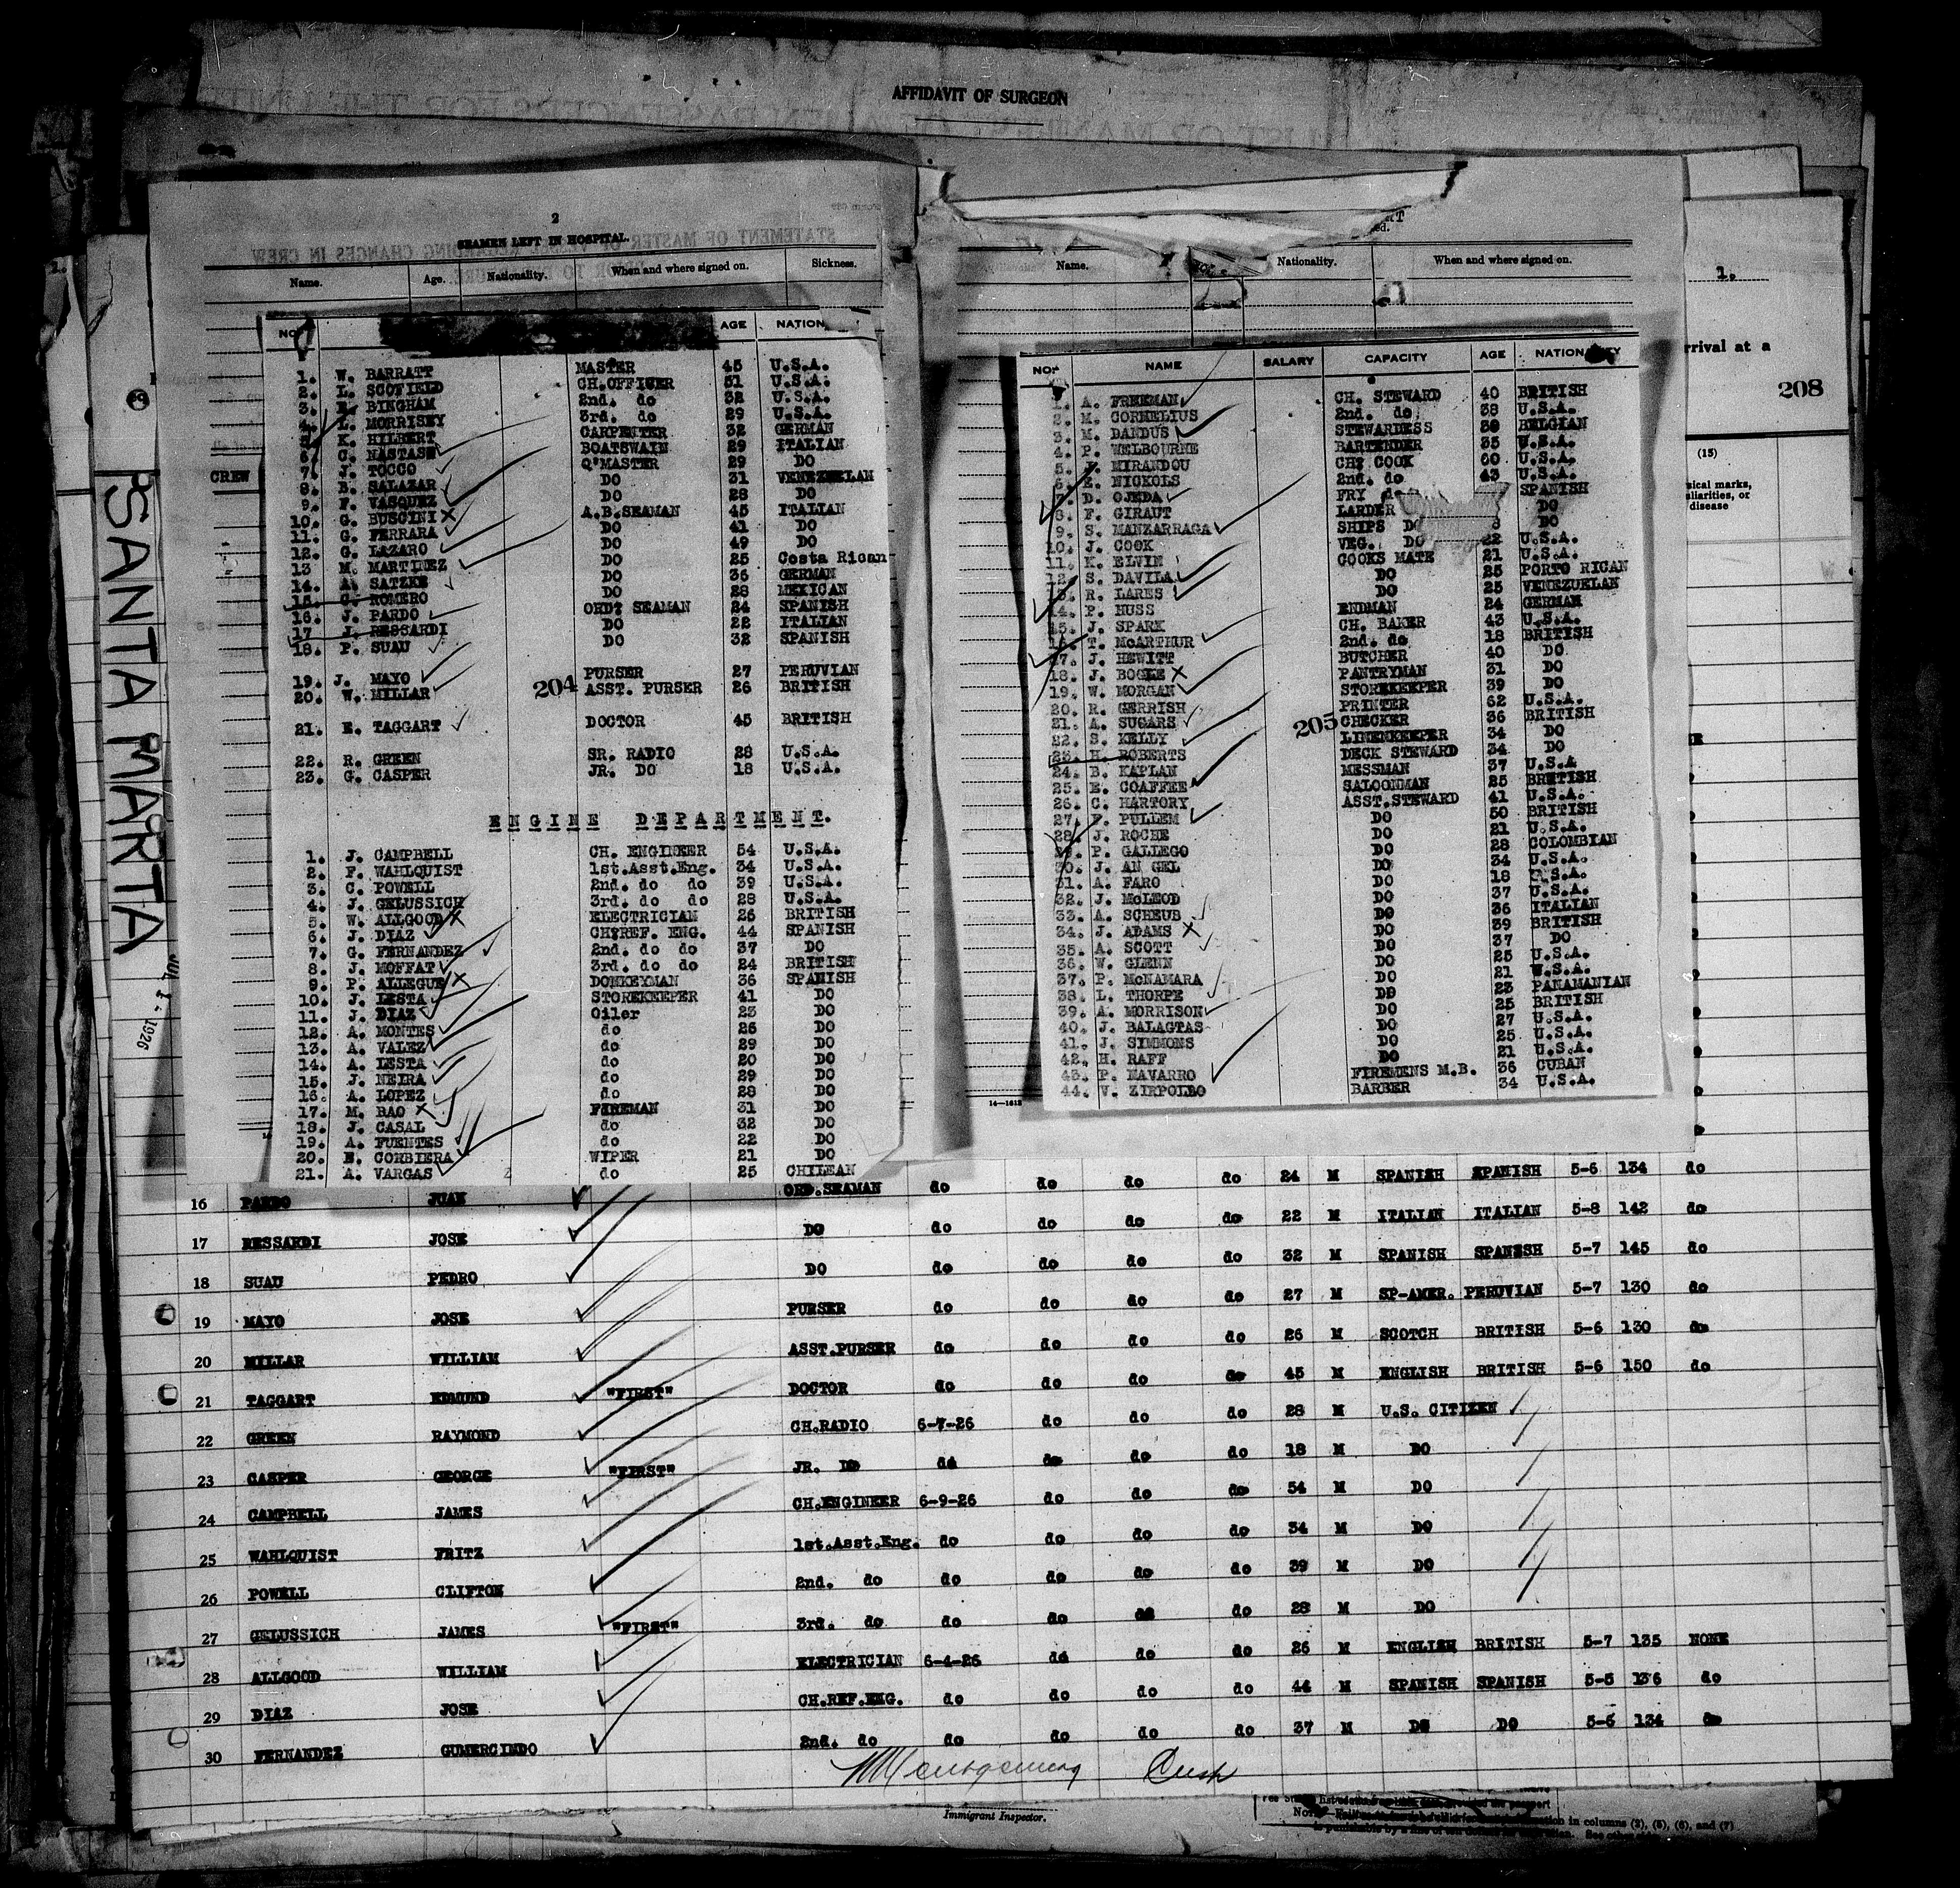 AFFIDAVIT OF SURGEON
2
SEAMEN LEFT IN HOSPITAL.
Name. Age. Nationality. When and where signed on. Sickness.
NO. AGE NATION
1. W. BARRATT MASTER 45 U.S.A.
2. L. SCOFIELD CH.OFFICER 51 U.S.A.
3. BINGHAM 2nd. do 32 U.S.A.
4. L. MORRISEY 3rd. do 29 U.S.A.
5. K. HILBERT CARPENTER 32 GERMAN
6. C. NASTASE BOATSWAIN 29 ITALIAN
7. J. TOCCO Q'MASTER 29 DO
8. B. SALAZAR DO 31 VENEZUELAN
9. F. VASQUEZ DO 28 DO
10. G. BUSCINI A.B.SEAMAN 45 ITALIAN
11. G. FERRARA DO 41 DO
12. G. LAZARO DO 49 DO
13 M. MARTINEZ DO 25 Costa Rican
14. A. SATZKE DO 36 GERMAN
15. C. ROMERO DO 28 MEXICAN
16. J. PARDO ORD? SEAMAN 24 SPANISH
17 J. RESSARDI DO 22 ITALIAN
18. P. SUAU DO 32 SPANISH
19. J. MAYO PURSER 27 PERUVIAN
20. W. MILLAR 204 ASST. PURSER 26 BRITISH
21. E. TAGGART DOCTOR 45 BRITISH
22. R. GREEN SR. RADIO 28 U.S.A.
23. G. CASPER JR. DO 18 U.S.A.
ENGINE DEPARTMENT.
1. J. CAMPBELL CH. ENGINEER 54 U.S.A.
2. F. WAHLQUIST 1st.Asst.Eng. 34 U.S.A.
3. C. POWELL 2nd. do do 39 U.S.A.
4. J. GELUSSICH 3rd. do do 28 U.S.A.
5. W. ALLGOOD ELECTRICIAN 26 BRITISH
6. J. DIAZ CH?REF. ENG. 44 SPANISH
7. G. FERNANDEZ 2nd. do do 37 DO
8. J. MOFFAT 3rd. do do 24 BRITISH
9. P. ALLEGUE DONKEYMAN 36 SPANISH
10. J. LESTA STOREKEEPER 41 DO
11. J. DIAZ Oiler 23 DO
12. A. MONTES do 26 DO
13. A. VALEZ do 29 DO
14. A. LESTA do 20 DO
15. J. NEIRA do 29 DO
16. A. LOPEZ do 28 DO
17. M. BAO FIREMAN 31 DO
18. J. CASAL do 32 DO
19. A. FUENTES do 22 DO
20. E. CORBIERA WIPER 21 DO
21. A. VARGAS do 25 CHILEAN
Name. Nationality. When and where signed on.
NO. NAME SALARY CAPACITY AGE NATIONALITY
1. A. FREEMAN CH. STEWARD 40 BRITISH
2. M. CORNELIUS 2nd. do 38 U.S.A.
3. M. DANDUS STEWARDESS 38 BELGIAN
4. P. WELBOURNE BARTENDER 35 U.S.A.
5. MIRANDOU CH? COOK 60 U.S.A.
6. E. NICKOLS 2nd. do 43 U.S.A.
7. D. OJEDA FRY do SPANISH
8. F. GIRAUT LARDER DO
9. S. MANZARRAGA SHIPS DO
10. J. COOK VEG. DO 22 U.S.A.
11. K. ELVIN COOKS MATE 21 U.S.A.
12. S. DAVILA DO 25 PORTO RICAN
13. R. LARES DO 25 VENEZUELAN
14. P. HUSS ENDMAN 24 GERMAN
15. J. SPARK CH. BAKER 43 U.S.A.
16. T. McARTHUR 2nd. do 18 BRITISH
17. J. HEWITT BUTCHER 40 DO
18. J. BOGLE PANTRYMAN 31 DO
19. W. MORGAN STOREKEEPER 39 DO
20. R. GERRISH PRINTER 62 U.S.A.
21. A. SUGARS 205 CHECKER 36 BRITISH
22. S. KELLY LINENKEEPER 34 DO
23. H. ROBERTS DECK STEWARD 34 DO
24. B. KAPLAN MESSMAN 37 U.S.A
25. E. COAFFEE SALOONMAN 25 BRITISH
26. C. HARTORY ASST.STEWARD 41 U.S.A.
27. F. PULLEM DO 50 BRITISH
28. J. ROCHE DO 21 U.S.A.
29. P. GALLEGO DO 28 COLOMBIAN
30. J. AN GEL DO 34 U.S.A.
31. A. FARO DO 18 U.S.A.
32. J. McLEOD DO 37 U.S.A.
33. A. SCHEUB DO 36 ITALIAN
34. J. ADAMS DO 39 BRITISH
35. A. SCOTT DO 37 DO
36. W. GLENN DO 25 U.S.A.
37. P. McNAMARA DO 21 U.S.A.
38. L. THORPE DO 23 PANAMANIAN
39. A. MORRISON DO 25 BRITISH
40. J. BALAGTAS DO 27 U.S.A.
41. J. SIMMONS DO 25 U.S.A.
42. H. RAFF DO 21 U.S.A.
43. P. NAVARRO FIREMENS M.B. 36 CUBAN
44. V. ZIRPOLBO BARBER 34 U.S.A.
1.
rrival at a
208
(15)
sical marks,
uliarities, or
disease
CREW
SANTA MARTA
1926
16 PARDO JUAN ORD.SEAMAN do do do do 24 M SPANISH SPANISH 5-6 134 do
17 RESSARDI JOSE DO do do do do 22 M ITALIAN ITALIAN 5-8 142 do
18 SUAU PEDRO DO do do do do 32 M SPANISH SPANISH 5-7 145 do
19 MAYO JOSE PURSER do do do do 27 M SP-AMER. PERUVIAN 5-7 130 do
20 MILLAR WILLIAM ASST.PURSER do do do do 26 M SCOTCH BRITISH 5-6 130 do
21 TAGGART EDMUND "FIRST" DOCTOR do do do do 45 M ENGLISH BRITISH 5-6 150 do
22 GREEN RAYMOND CH.RADIO 6-7-26 do do do 28 M U.S. CITIZEN
23 CASPER GEORGE "FIRST" JR. DO do do do do 18 M DO
24 CAMPBELL JAMES CH.ENGINEER 6-9-26 do do do 54 M DO
25 WAHLQUIST FRITZ 1st.Asst.Eng. do do do do 34 M DO
26 POWELL CLIFTON 2nd. do do do do do 39 M DO
27 GELUSSICH JAMES "FIRST" 3rd. do do do do do 28 M DO
28 ALLGOOD WILLIAM ELECTRICIAN 6-4-26 do do do 26 M ENGLISH BRITISH 5-7 135 NONE
29 DIAZ JOSE CH.REF.ENG. do do do do 44 M SPANISH SPANISH 5-5 136 do
30 FERNANDEZ GUMERCINDO 2nd. do do do do do 37 M DO DO 5-6 134 do
Immigrant Inspector.
in columns (2), (5), (6), and (7)